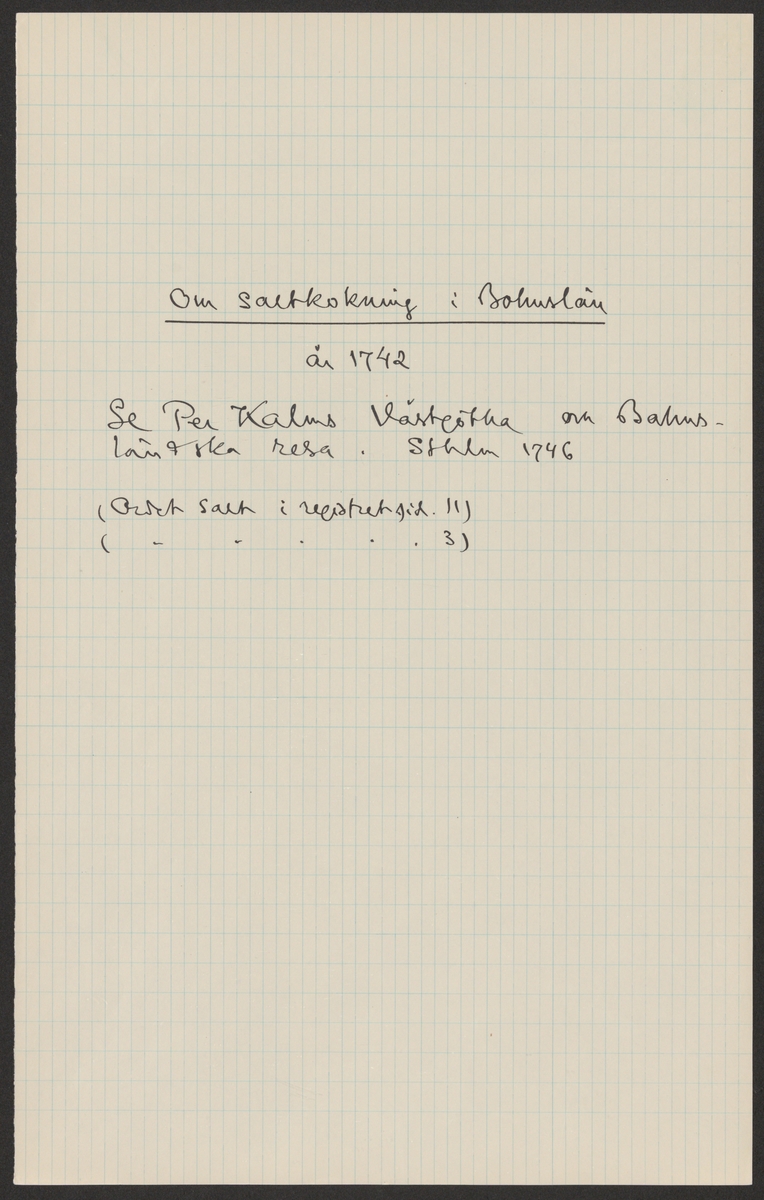 Om saltkokning i Bohuslän
år 1742
Se Per Kalms Västgötha och Bahus-
länska resa. Sthlm 1746
(Ordet salt i registret sid. 11)
( " " " " . 3)